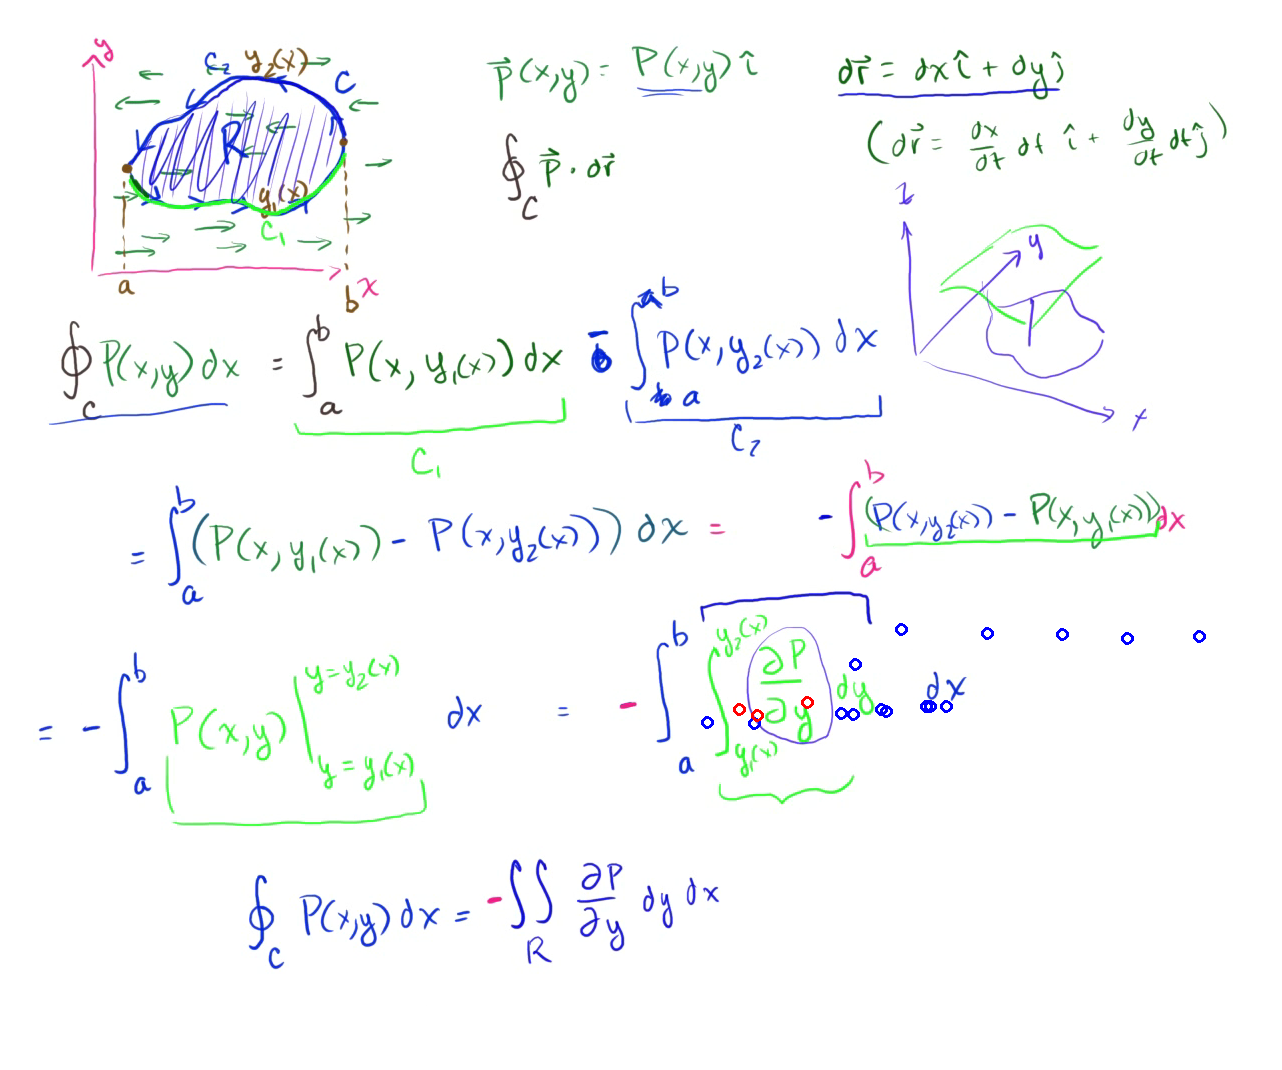 y C₂ y₂(x) C
R
y₁(x)
C₁
a b x
P⃗(x,y) = P(x,y) î
dr⃗ = dx î + dy ĵ
∮_C P⃗ · dr⃗
(dr⃗ = dx/dt dt î + dy/dt dt ĵ)
z y x
∮_C P(x,y) dx = ∫_a^b P(x, y₁(x)) dx - ∫_a^b P(x, y₂(x)) dx
C₁ C₂
= ∫_a^b (P(x, y₁(x)) - P(x, y₂(x))) dx = - ∫_a^b (P(x, y₂(x)) - P(x, y₁(x))) dx
= - ∫_a^b P(x,y) |_{y = y₁(x)}^{y = y₂(x)} dx = - ∫_a^b ∫_{y₁(x)}^{y₂(x)} ∂P/∂y dy dx
∮_C P(x,y) dx = - ∬_R ∂P/∂y dy dx